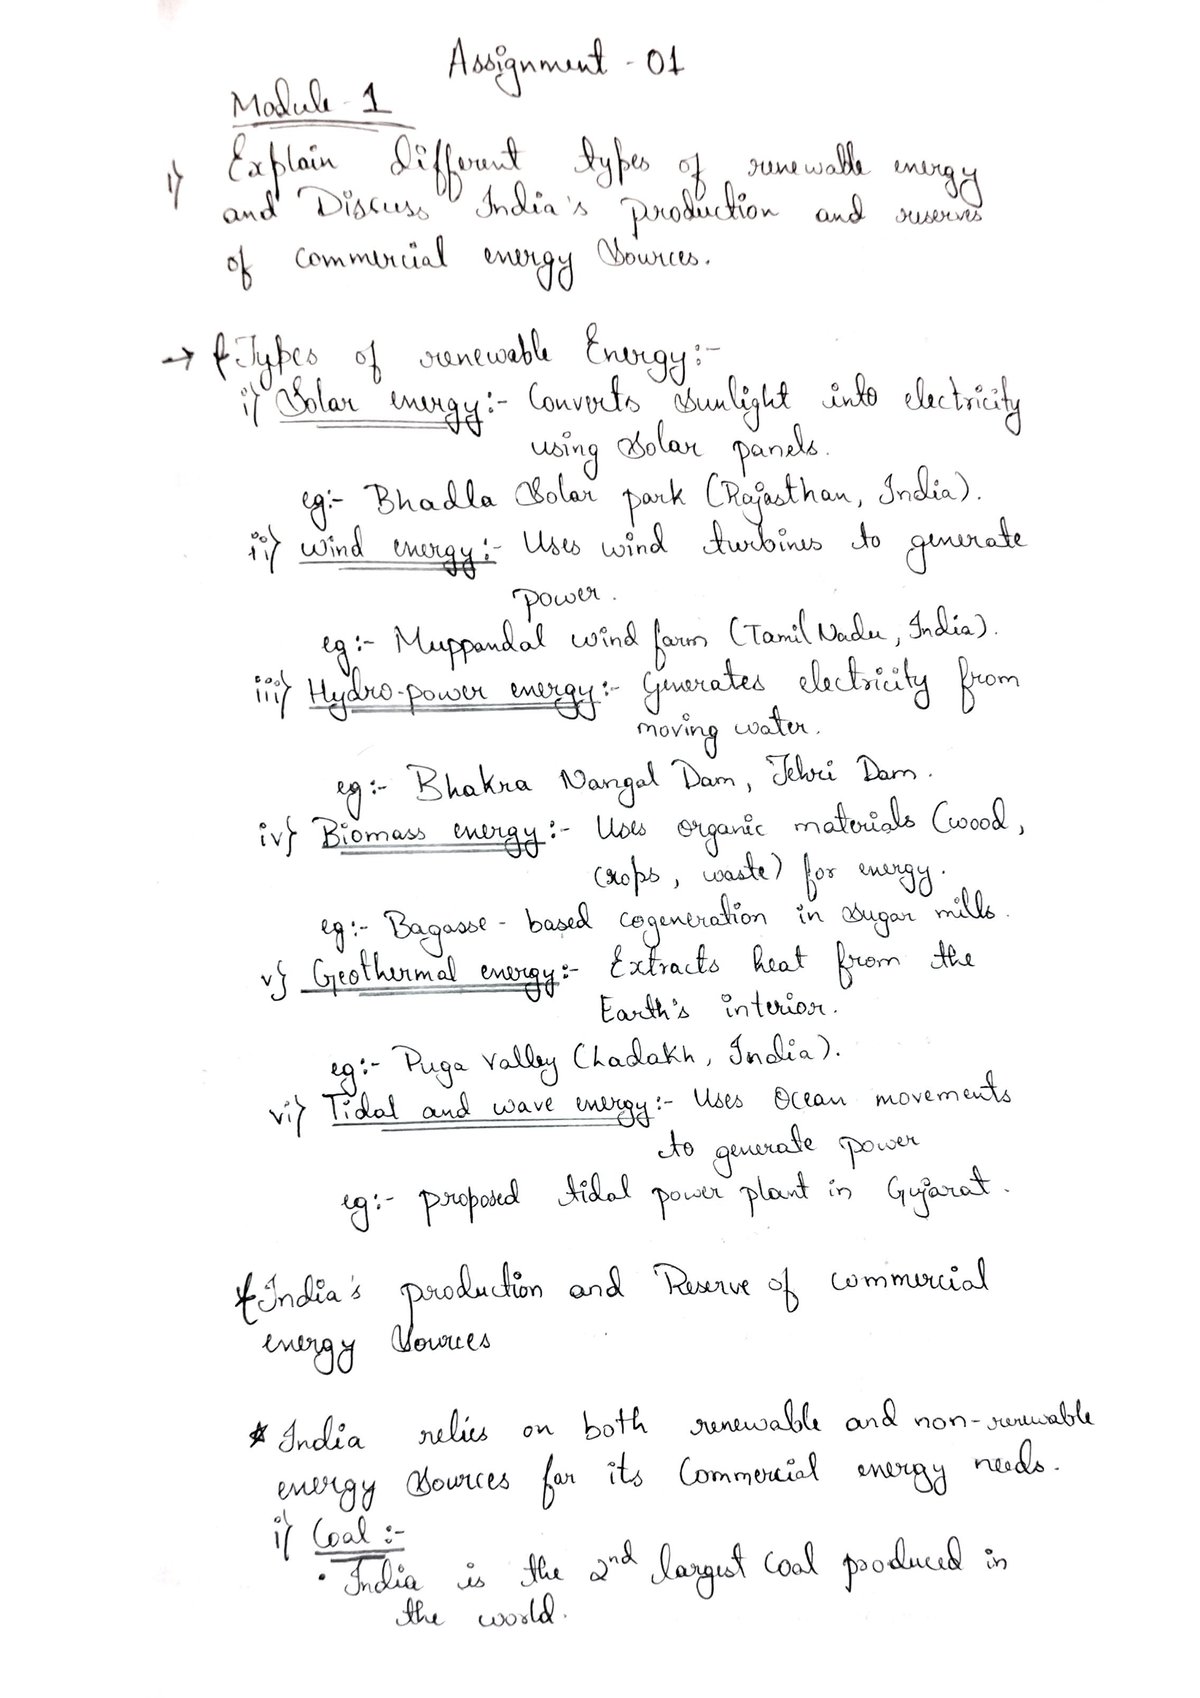 Assignment - 01
Module - 1
1) Explain different types of renewable energy
and Discuss India's production and reserves
of commercial energy Sources.
→ * Types of renewable Energy:-
i) Solar energy:- Converts sunlight into electricity
using solar panels.
eg:- Bhadla Solar park (Rajasthan, India).
ii) wind energy:- Uses wind turbines to generate
power.
eg:- Muppandal wind farm (Tamil Nadu, India).
iii) Hydro-power energy:- Generates electricity from
moving water.
eg:- Bhakra Nangal Dam, Tehri Dam.
iv) Biomass energy:- Uses organic materials (wood,
crops, waste) for energy.
eg:- Bagasse - based cogeneration in sugar mills.
v) Geothermal energy:- Extracts heat from the
Earth's interior.
eg:- Puga valley (Ladakh, India).
vi) Tidal and wave energy:- Uses Ocean movements
to generate power
eg:- proposed tidal power plant in Gujarat.
* India's production and Reserve of commercial
energy Sources
* India relies on both renewable and non-renewable
energy sources for its Commercial energy needs.
i) Coal :-
• India is the 2nd largest coal produced in
the world.